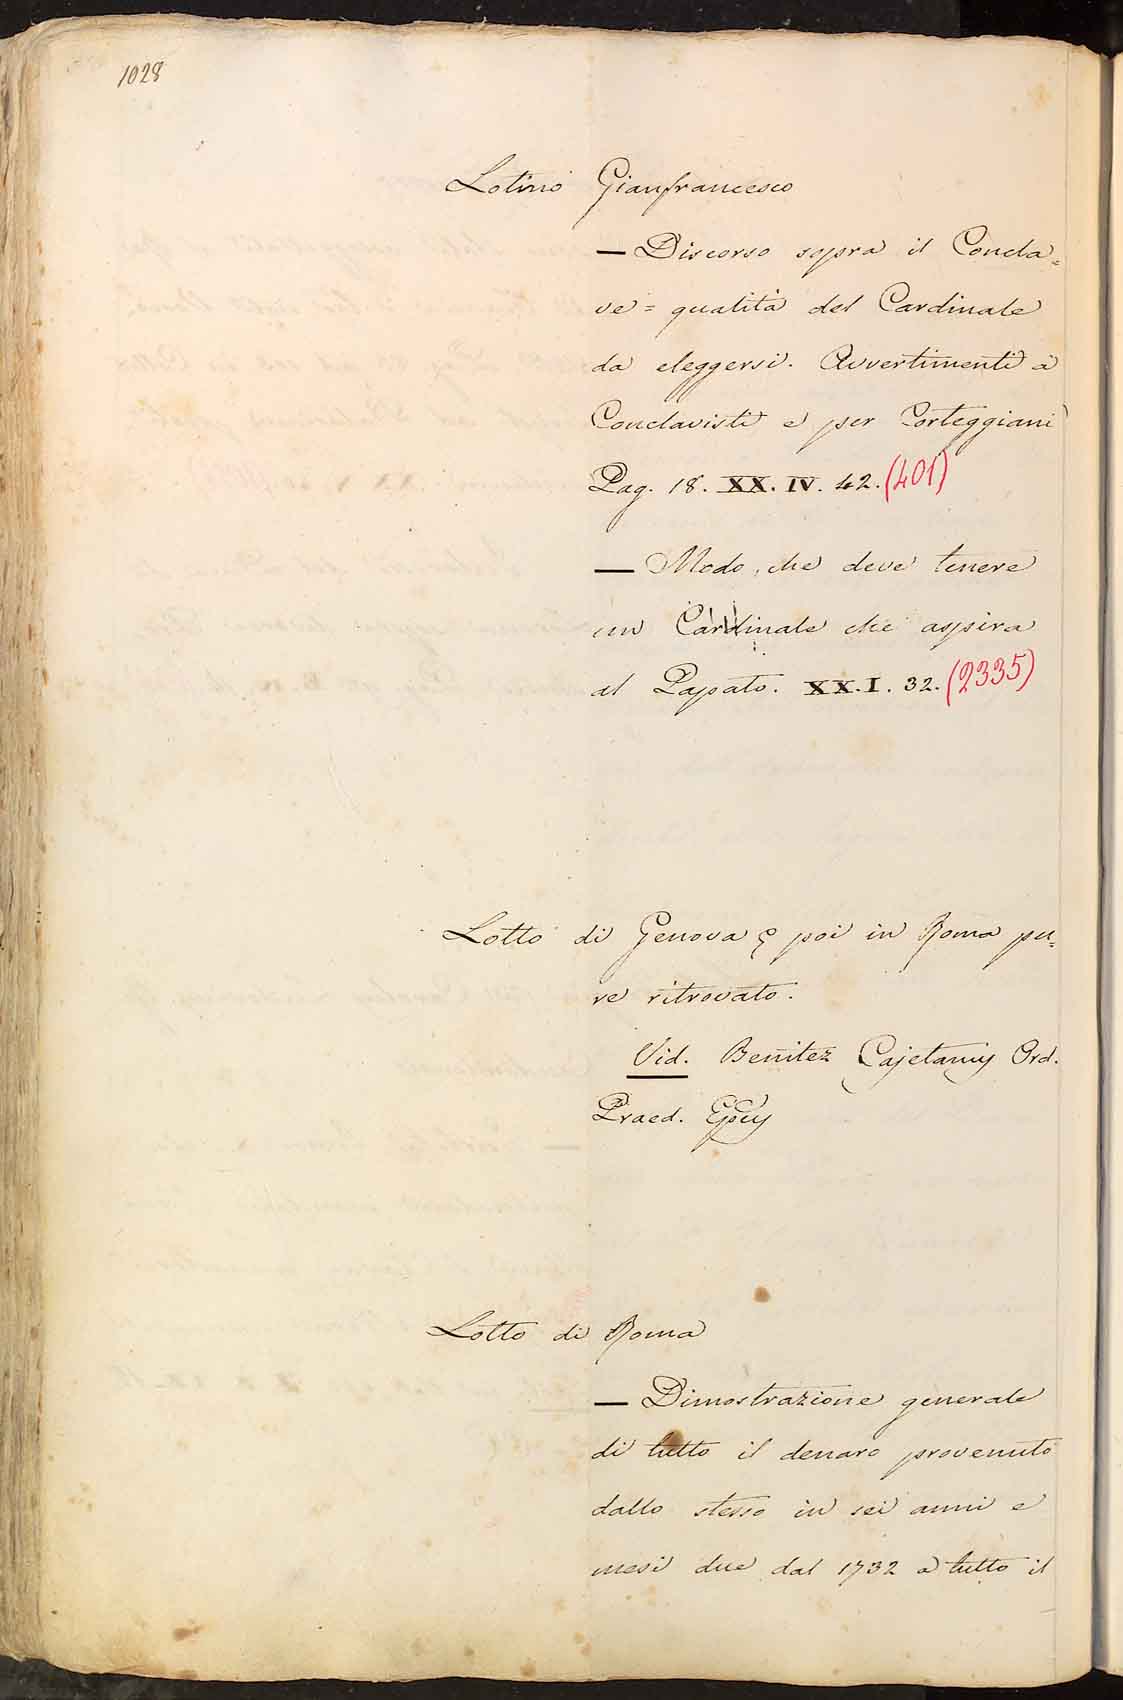 1028
Lotino Gianfrancesco
— Discorso sopra il Concla=
ve = qualità del Cardinale
da eleggersi. Avvertimenti a
Conclavisti e per Corteggiani
Pag. 18. XX. IV. 42. (401)
— Modo, che deve tenere
un Cardinale che aspira
al Papato. XX. I. 32. (2335)
Lotto di Genova e poi in Roma pu=
re ritrovato.
Vid. Benitez Cajetanus Ord.
Praed. Epus
Lotto di Roma
— Dimostrazione generale
di tutto il denaro provenuto
dallo stesso in sei anni e
mesi due dal 1732 a tutto il